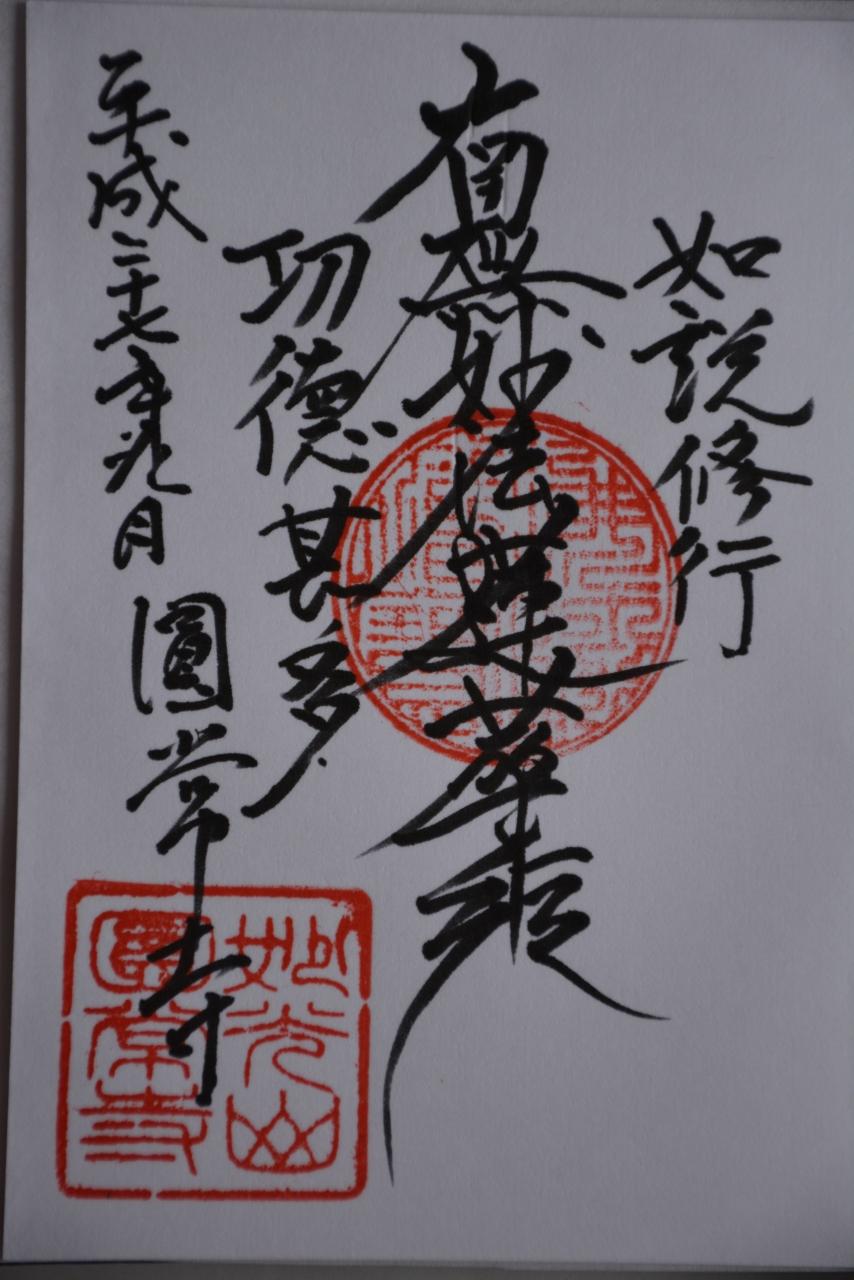 如説修行
南無妙法蓮華経
功徳甚多
平成二十七年九月
圓常寺
妙光山
圓常寺